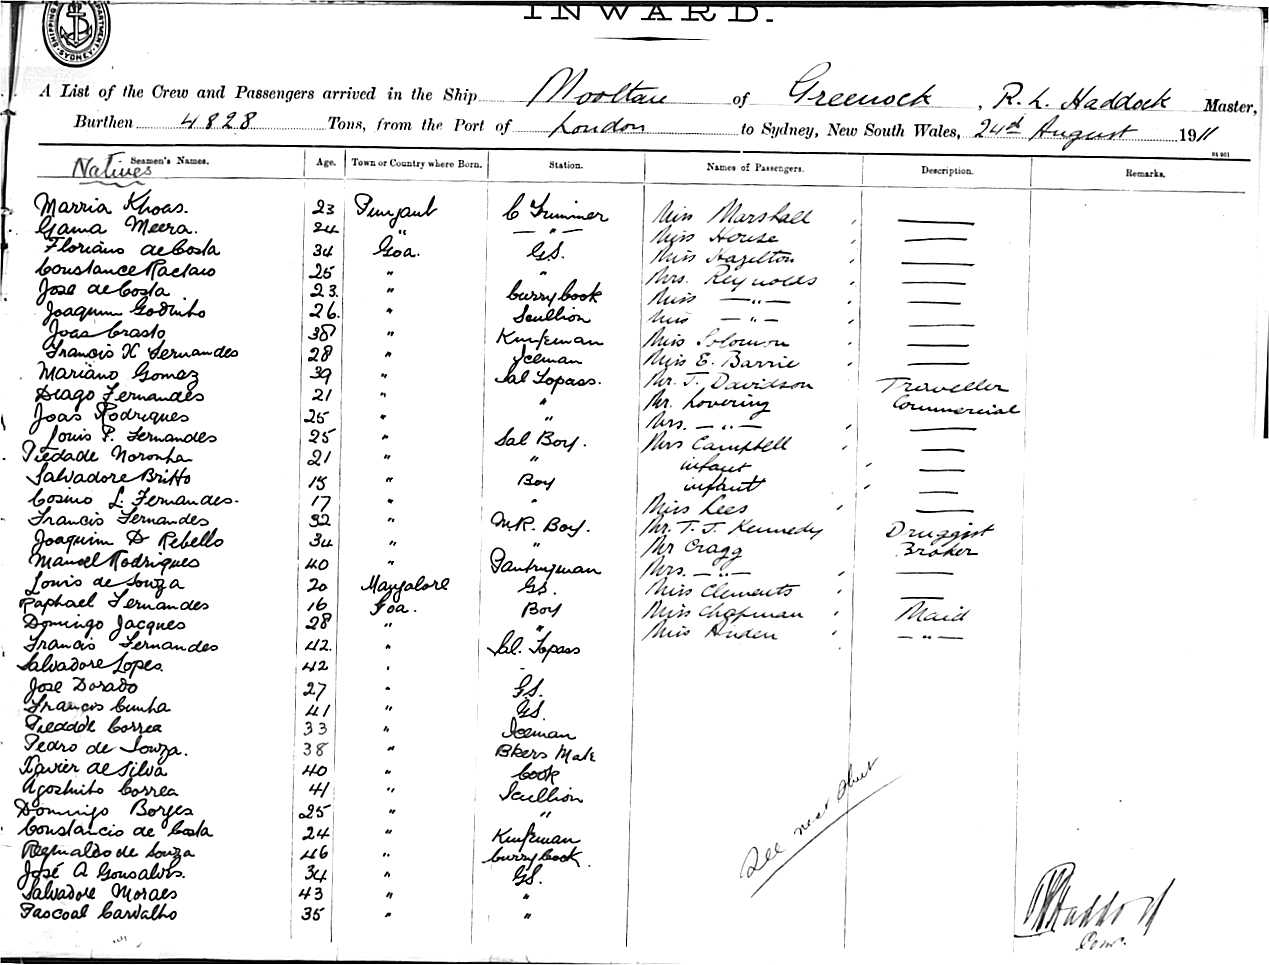 INWARD.
SYDNEY
A List of the Crew and Passengers arrived in the Ship Mooltan of Greenock, R. L. Haddock Master,
Burthen 4828 Tons, from the Port of London to Sydney, New South Wales, 24th August 1911
Natives Seamen's Names. Age. Town or Country where Born. Station. Names of Passengers. Description. Remarks.
Marria Khoas. 23 Punjaub C Trimmer Miss Marshall
Gama Meera. 24 " — " — Miss House
Floriano de Costa 34 Goa. GS. Miss Hazelton
Constance Raetano 25 " " Mrs. Reynolds
Jose de Costa 23. " Curry Cook Miss — " —
Joaquim Godinho 26. " Scullion Miss — " —
Joas Crasto 38 " Knifeman Miss Solomon
Francis X Fernandes 28 " Iceman Miss E. Barrie
Mariano Gomez 39 " Sal Topass. Mr. J. Davidson Traveller
Diago Fernandes 21 " " Mr. Lovering Commercial
Joas Rodrigues 25 " " Mrs. — " —
Louis P. Fernandes 25 " Sal Boy. Mrs Campbell
Piedade Noronha 21 " " infant
Salvadore Britto 15 " Boy infant
Cosmo L. Fernandes. 17 " " Miss Lees
Francis Fernandes 32 " M.R. Boy. Mr. T. J. Kennedy Druggist
Joaquim D Rebello 34 " " Mr Cragg Broker
Manoel Rodrigues 40 " Pantryman Mrs. — " —
Louis de Souza 20 Mangalore GS. Miss Clements
Raphael Fernandes 16 Goa. Boy Miss Chapman Maid
Domingo Jacques 28 " " Miss — " —
Francis Fernandes 42. " Sal. Topass
Salvadore Lopes. 42 "
Jose Dorado 27 " GS.
Francis Cunha 41 " GS.
Piedade Correa 33 " Iceman
Pedro de Souza. 38 " Bkers Mate
Xavier de Silva 40 " Cook
Agostinho Correa 41 " Scullion
Domingo Borges 25 " "
Constancio de Costa 24 " Knifeman
Reginaldo de Souza 46 " Curry Cook.
José A Gonsalves. 34 " GS.
Salvadore Moraes 43 " "
Pascoal Carvalho 35 " "
See next sheet
R L Haddock
Comr.